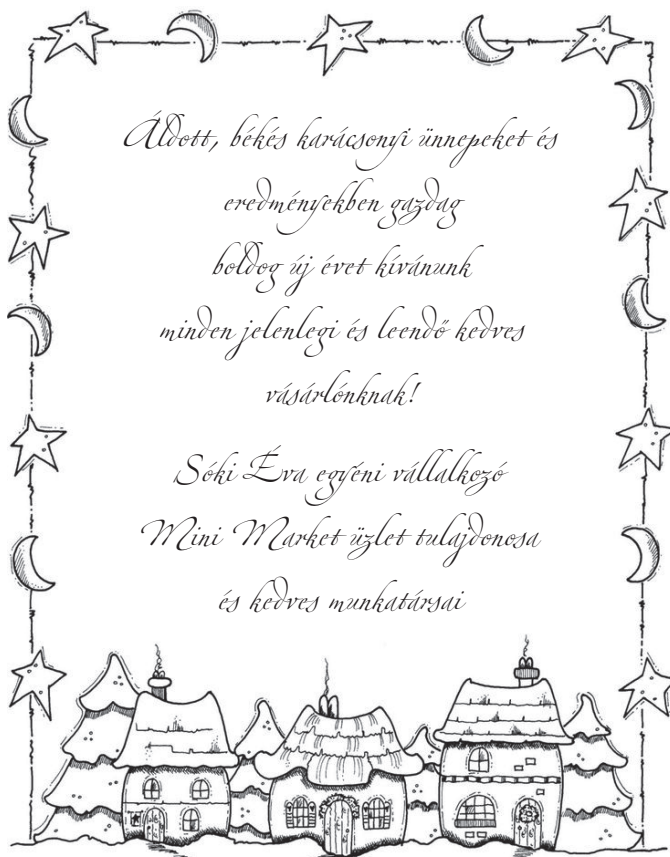 Áldott, békés karácsonyi ünnepeket és
eredményekben gazdag
boldog új évet kívánunk
minden jelenlegi és leendő kedves
vásárlónknak!
Sóki Éva egyéni vállalkozó
Mini Market üzlet tulajdonosa
és kedves munkatársai